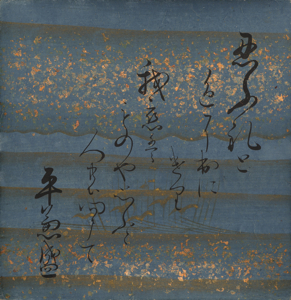 忍ふれと
色に出に
けり
我恋は
ものや思ふと
人の問まて
平兼盛